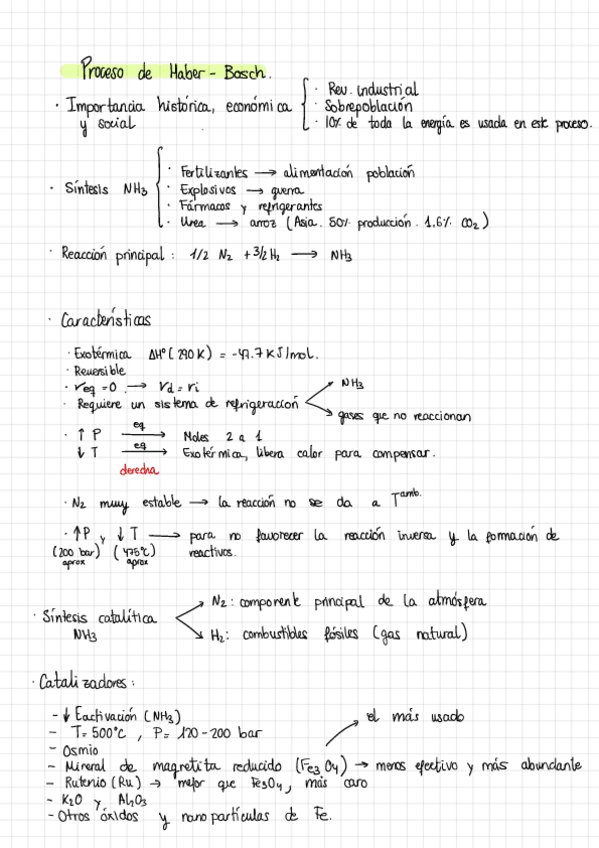 Proceso de Haber - Bosch.
· Importancia histórica, económica y social
· Rev. industrial
· Sobrepoblación
· 10% de toda la energía es usada en este proceso.
· Síntesis NH3
· Fertilizantes → alimentación población
· Explosivos → guerra
· Fármacos y refrigerantes
· Urea → arroz (Asia. 50% producción. 1.6% CO2)
· Reacción principal: 1/2 N2 + 3/2 H2 → NH3
· Características
· Exotérmica ΔHº (290 K) = -47.7 KJ/mol.
· Reversible
· req = 0 → rd = ri
· Requiere un sistema de refrigeración
NH3
gases que no reaccionan
· ↑ P eq → Moles 2 a 1
↓ T eq → Exotérmica, libera calor para compensar.
derecha
· N2 muy estable → la reacción no se da a Tamb.
· ↑P y ↓ T → para no favorecer la reacción inversa y la formación de
(200 bar) (475ºC) reactivos.
aprox aprox
· Síntesis catalítica
NH3
N2: componente principal de la atmósfera
H2: combustibles fósiles (gas natural)
· Catalizadores:
- ↓ Eactivación (NH3)
- T= 500ºC, P= 120-200 bar
el más usado
- Osmio
- Mineral de magnetita reducido (Fe3O4) → menos efectivo y más abundante
- Rutenio (Ru) → mejor que Fe3O4, más caro
- K2O y Al2O3
- Otros óxidos y nanopartículas de Fe.